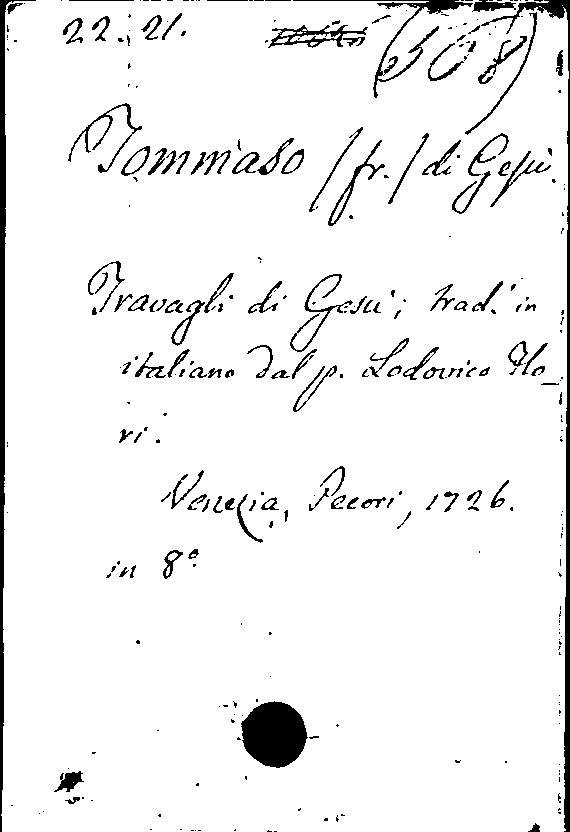 22. 21. (508)
Tommaso /fr./ di Gesù.
Travagli di Gesù; trad. in
italiano dal p. Lodovico Flo-
ri.
Venezia, Pecori, 1726.
in 8º